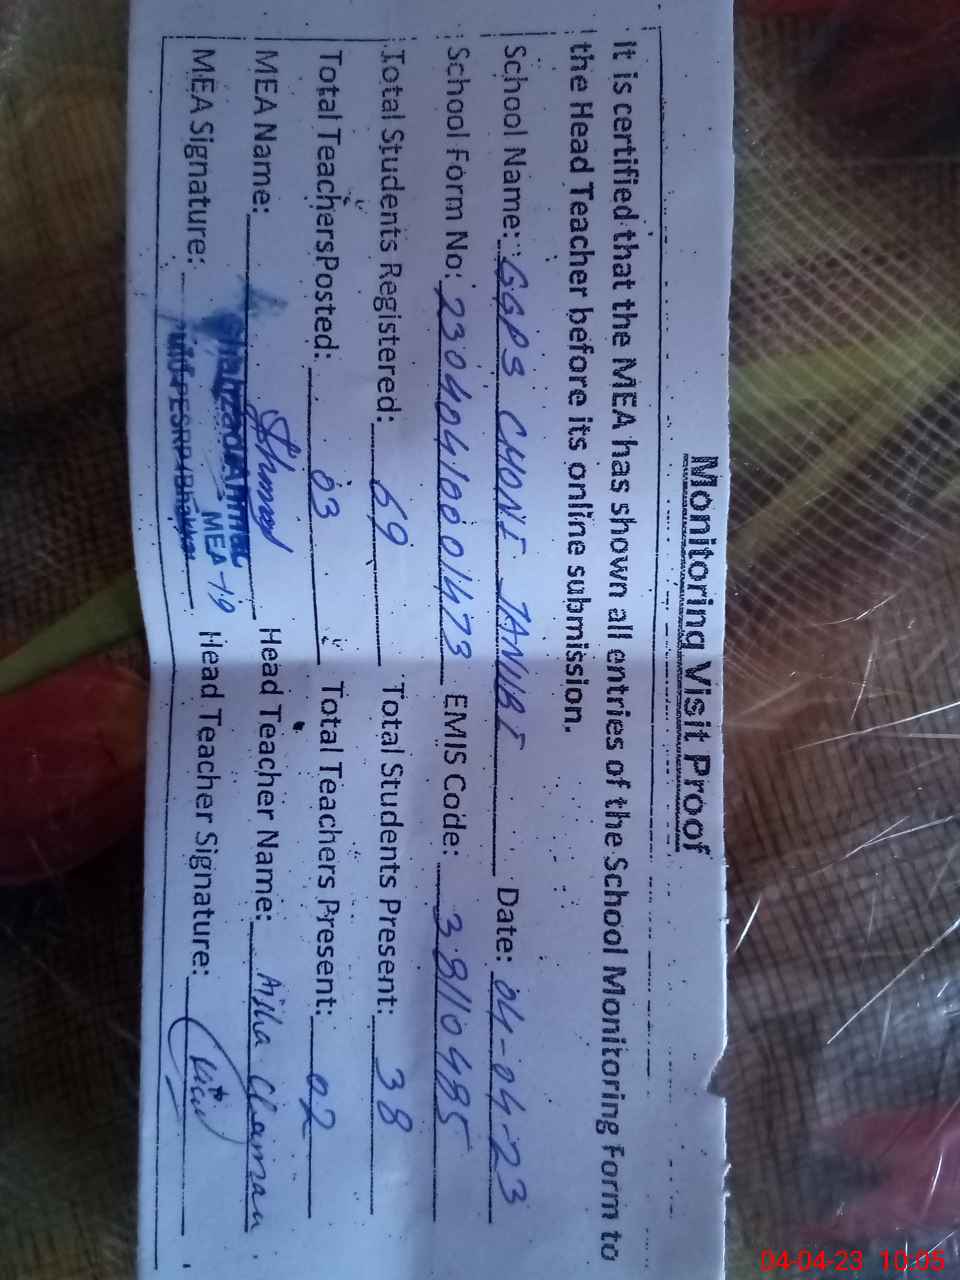 Monitoring Visit Proof
It is certified that the MEA has shown all entries of the School Monitoring Form to
the Head Teacher before its online submission.
School Name: GGPS CHONI JANUBI Date: 04-04-23
School Form No: 2304041000 01473 EMIS Code: 38110485
Total Students Registered: 69 Total Students Present: 38
Total TeachersPosted: 03 Total Teachers Present: 02
MEA Name: Head Teacher Name: Aisha Chaman
Shahzad Ahmad
MEA-19
MEA Signature: Head Teacher Signature:
04-04-23 10:05